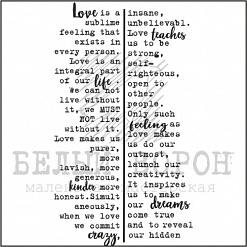 Love is a
sublime
feeling that
exists in
every person.
Love is an
integral part
of our life
We can't
live without
it, we MUST
NOT live
without it.
Love makes us
purer,
more
lavish, more
generous,
kinder more
honest.Simult
aneously,
when we love
we commit
crazy,
insane,
unbelievabl.
Love teaches
us to be
strong,
self-
righteous,
open to
other
people.
Only such
feeling as
love makes
us do our
outmost,
launch our
creativity.
It inspires
us to make
our dreams
come true
and to reveal
our hidden